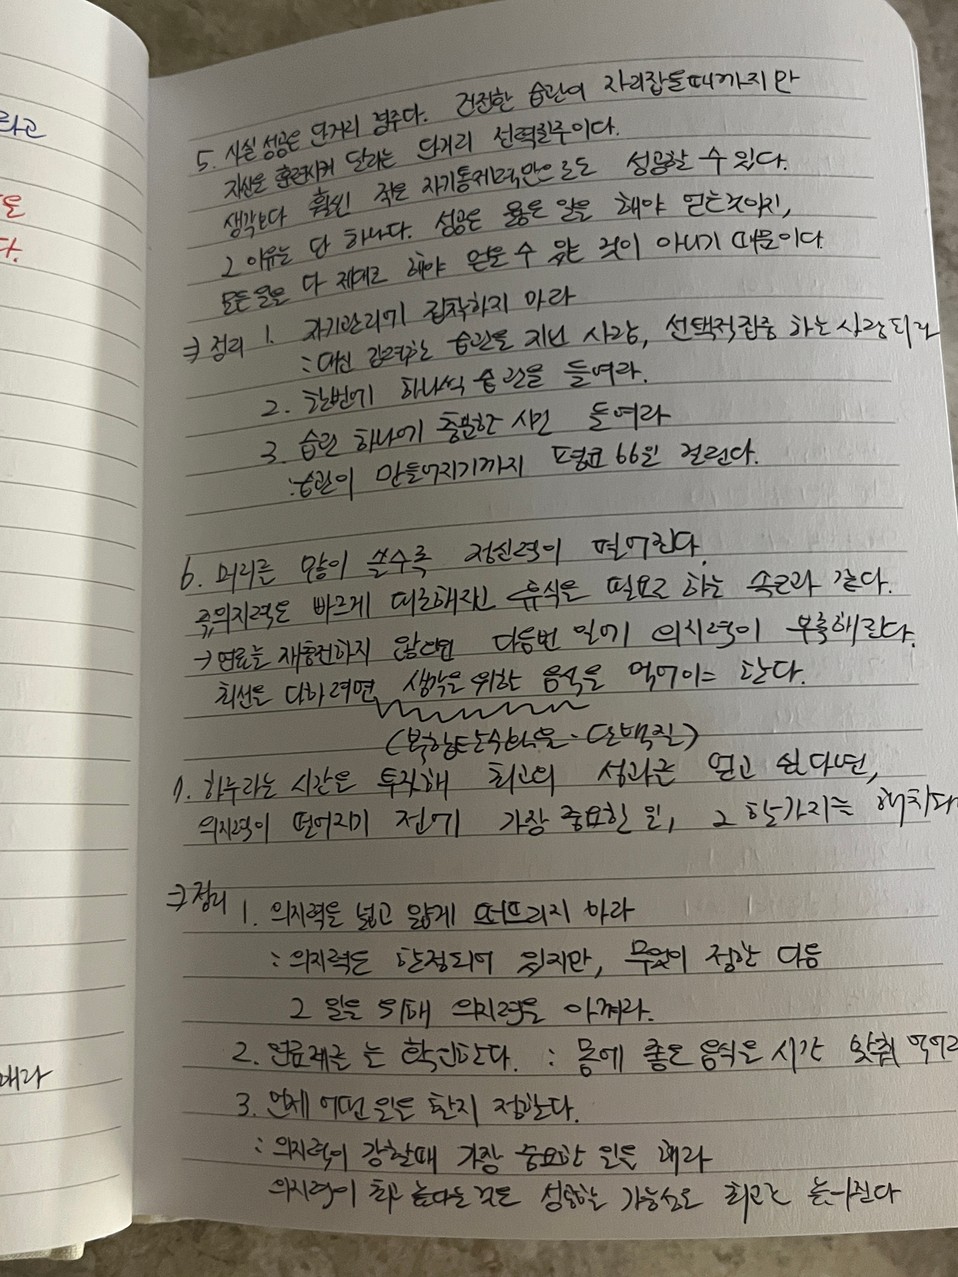 라고
을
다.
해라
5. 사실 성공은 단거리 경주다. 건전한 습관이 자리잡을때까지만
자신을 훈련시켜 달리는 단거리 전력질주이다.
생각보다 훨씬 적은 자기통제력만으로도 성공할 수 있다.
그 이유는 단 하나다. 성공은 옳은 일을 해야 얻는것이지,
모든 일을 다 제대로 해야 얻을 수 있는 것이 아니기 때문이다.
⇒ 정리 1. 자기관리에 집착하지 마라
: 대신 강력한 습관을 지닌 사람, 선택적집중 하는 사람 되라
2. 한번에 하나씩 습관을 들여라.
3. 습관 하나에 충분한 시간 들여라
: 습관이 만들어지기까지 평균 66일 걸린다.
6. 머리를 많이 쓸수록 정신력이 떨어진다.
즉, 의지력은 빠르게 음식을 필요로 하는 속근과 같다.
→ 연료를 재충전하지 않으면 다음번 일에 의지력이 부족해진다.
최선을 다하려면 생각을 위한 음식을 먹어야 한다.
(복합탄수화물·단백질)
7. 하루라는 시간을 투자해 최고의 성과를 얻고 싶다면,
의지력이 떨어지기 전에 가장 중요한 일, 그 한가지를 해치워
⇒ 정리 1. 의지력을 넓고 얇게 퍼뜨리지 마라
: 의지력은 한정되어 있지만, 무엇이 정한 다음
그 일을 위해 의지력을 아껴라.
2. 연료계를 늘 확인한다. : 몸에 좋은 음식을 시간 맞춰 먹어라
3. 언제 어떤 일을 할지 정한다.
: 의지력이 강할때 가장 중요한 일을 해라
의지력이 최고 높다는 것은 성공하는 가능성도 최고로 높아진다